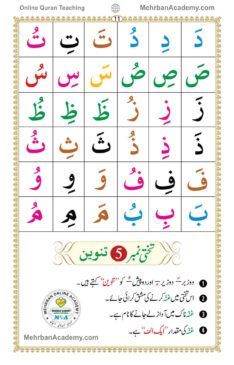 Online Quran Teaching MehrbanAcademy.com
11
دَ دِ دُ تَ تِ تُ
صَ صِ صُ سَ سِ سُ
زَ زِ زُ ظَ ظِ ظُ
ذَ ذِ ذُ ثَ ثِ ثُ
فَ فِ فُ وَ وِ وُ
بَ بِ بُ مَ مِ مُ
تختی نمبر 5 تنوین
1 دو زبر ـً دو زیر ـٍ اور دو پیش ـٌ کو "تنوین" کہتے ہیں۔
2 اس تختی میں غنہ کرنے کی مشق کرائی جائے۔
3 غنہ ناک میں آواز لے جانے کا نام ہے۔
4 غنہ کی مقدار "ایک الف" ہے۔
MEHRBAN ONLINE ACADEMY
MehrbanAcademy.com